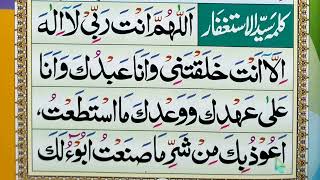 کلمہ سید الاستغفار اَللّٰهُمَّ اَنْتَ رَبِّیْ لَاۤ اِلٰهَ
اِلَّاۤ اَنْتَ خَلَقْتَنِیْ وَاَنَا عَبْدُكَ وَاَنَا
عَلٰی عَهْدِكَ وَوَعْدِكَ مَا اسْتَطَعْتُ،
اَعُوْذُ بِكَ مِنْ شَرِّ مَا صَنَعْتُ اَبُوْٓءُ لَكَ